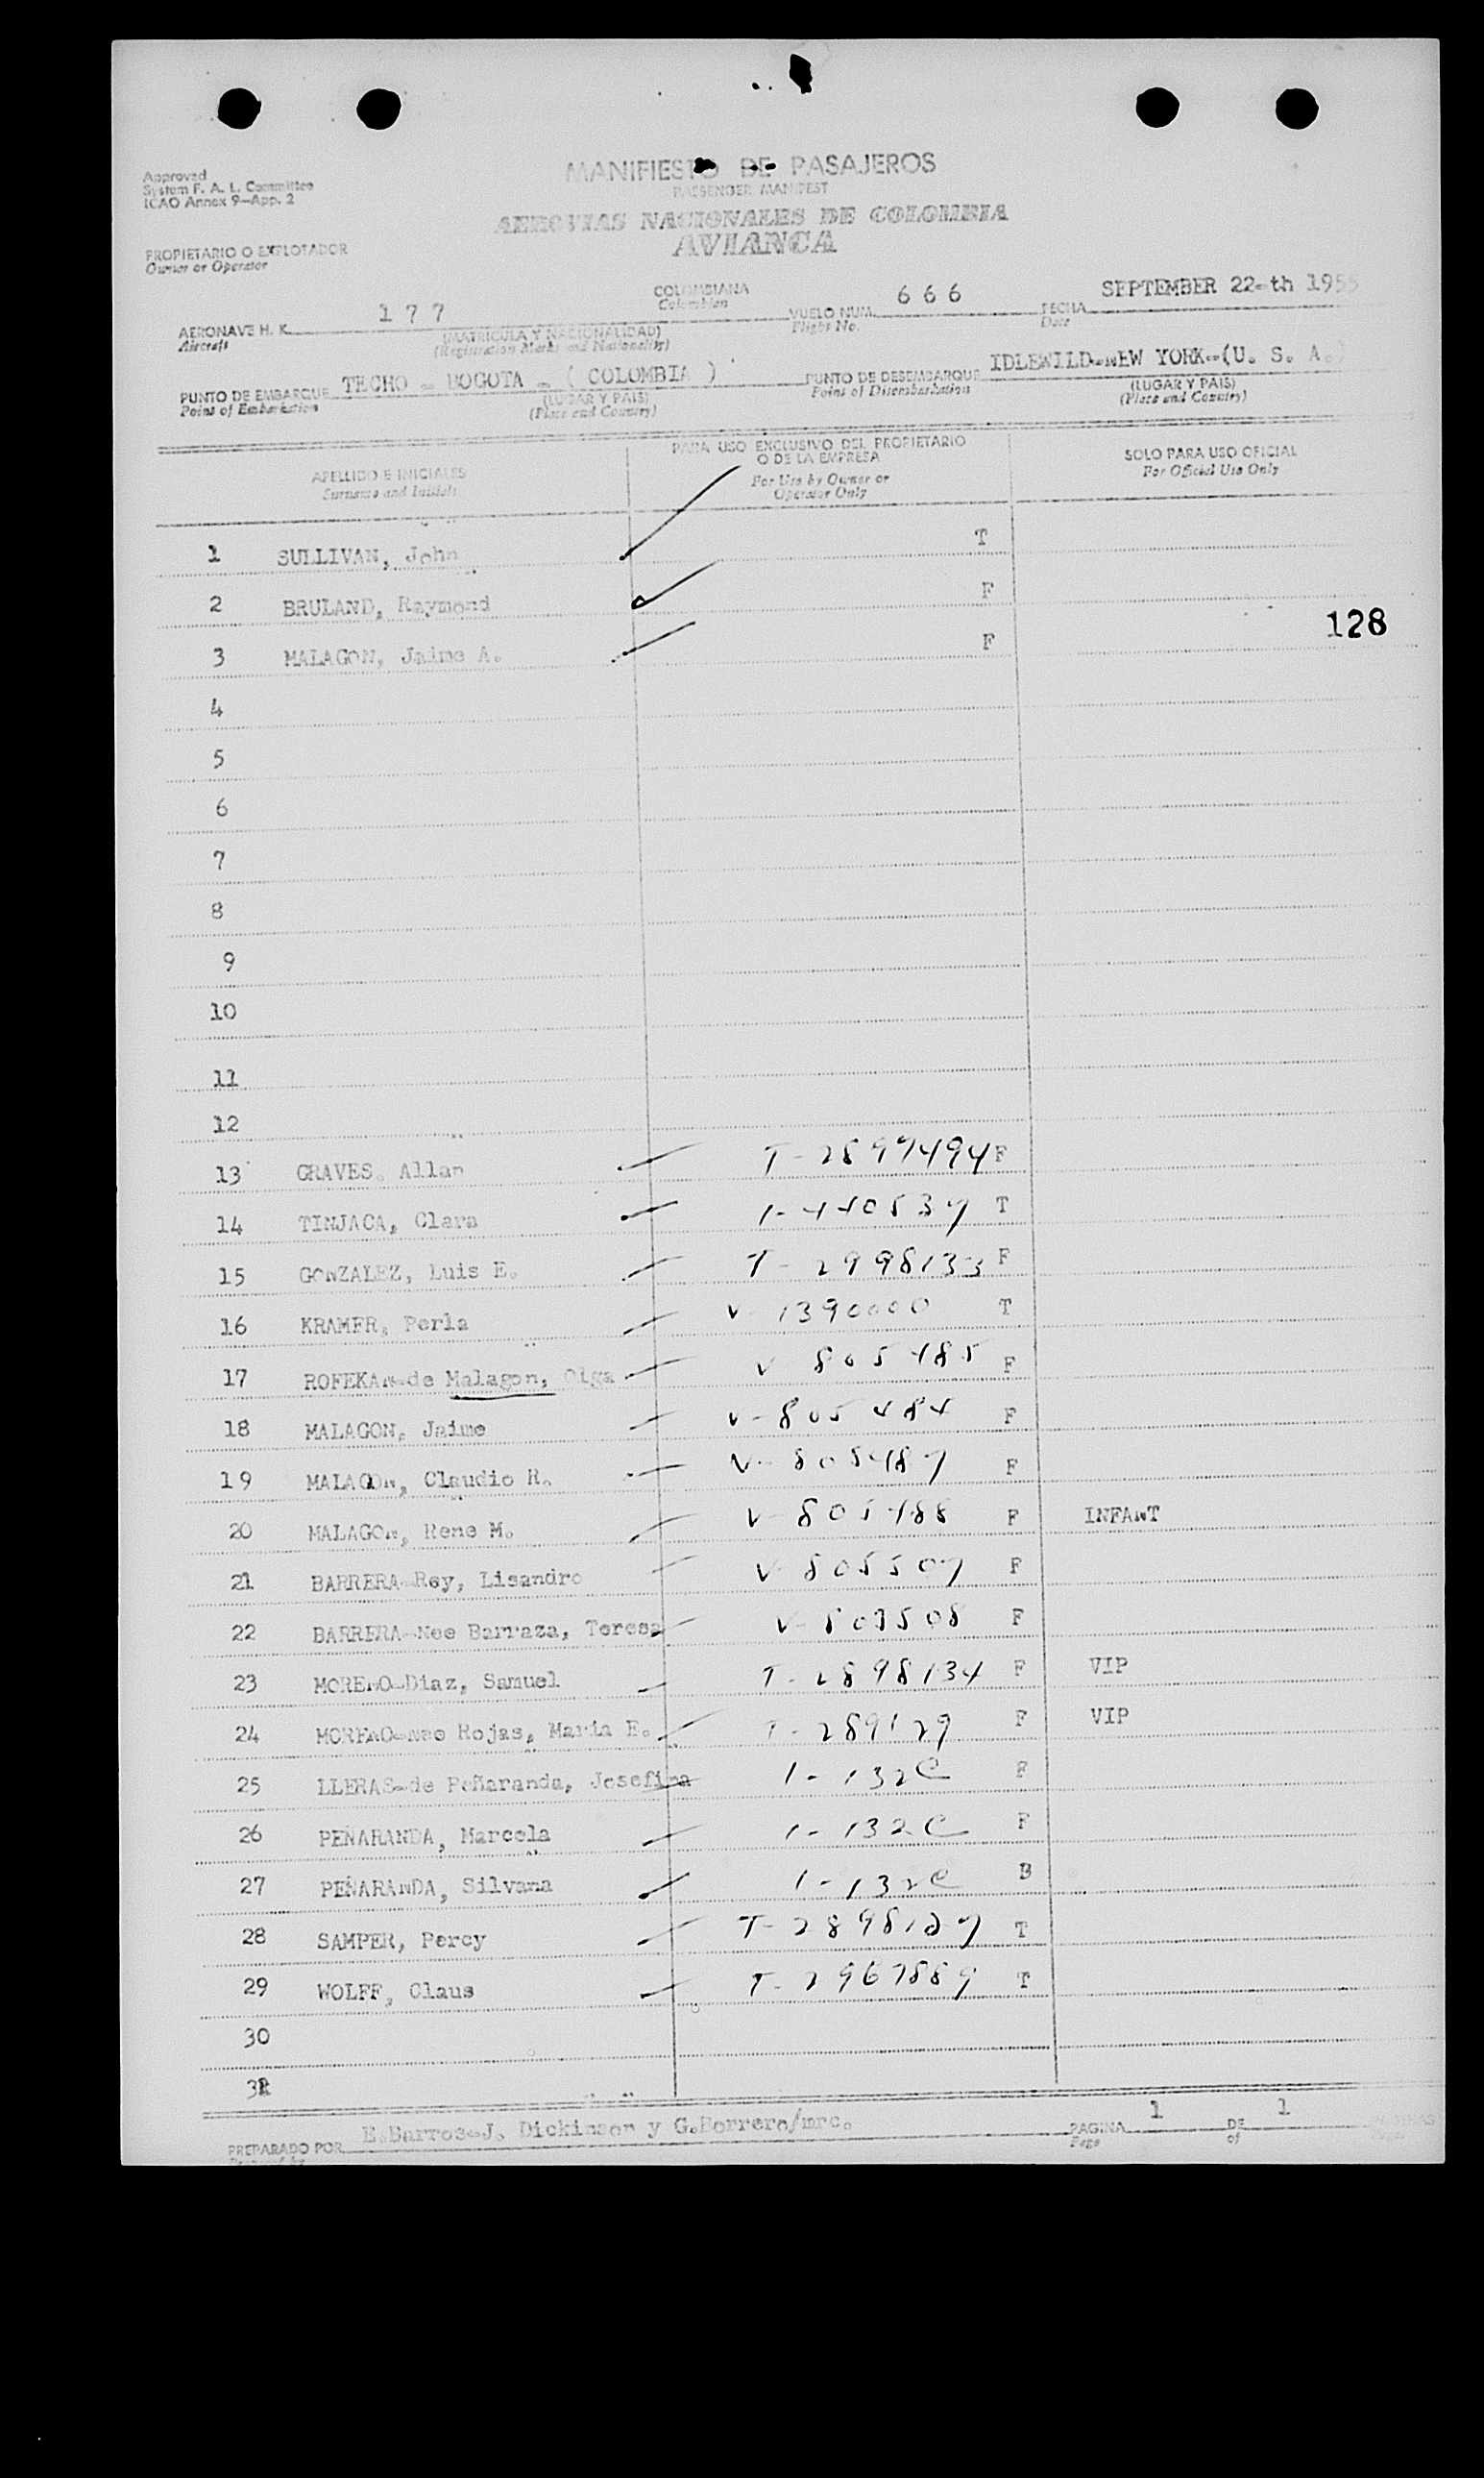 MANIFIESTO DE PASAJEROS
PASSENGER MANIFEST
Approved
System F. A. L. Committee
ICAO Annex 9-App. 2
AEROVIAS NACIONALES DE COLOMBIA
AVIANCA
PROPIETARIO O EXPLOTADOR
Owner or Operator
AERONAVE H. K. 177 COLOMBIANA VUELO NUM. 666 FECHA SEPTEMBER 22-th 1955
Aircraft (MATRICULA Y NACIONALIDAD) Colombian Flight No. Date
(Registration Marks and Nationality)
PUNTO DE EMBARQUE TECHO - BOGOTA - ( COLOMBIA ) PUNTO DE DESEMBARQUE IDLEWILD-NEW YORK-(U. S. A.)
Point of Embarkation (LUGAR Y PAIS) Point of Disembarkation (LUGAR Y PAIS)
(Place and Country) (Place and Country)
APELLIDO E INICIALES PARA USO EXCLUSIVO DEL PROPIETARIO O DE LA EMPRESA SOLO PARA USO OFICIAL
Surname and Initials For Use by Owner or Operator Only For Official Use Only
1 SULLIVAN, John T
2 BRULAND, Raymond F
128
3 MALAGON, Jaime A. F
4
5
6
7
8
9
10
11
12
13 GRAVES. Allan T-2897494 F
14 TINJACA, Clara 1-440537 T
15 GONZALEZ, Luis E. T-2998133 F
16 KRAMER, Perla V-1390000 T
17 ROFEKAN-de Malagon, Olga V 805485 F
18 MALAGON, Jaime V-805484 F
19 MALAGON, Claudio R. V-805487 F
20 MALAGON, Rene M. V-805488 F INFANT
21 BARRERA-Rey, Lisandro V-805507 F
22 BARRERA-Nee Barraza, Teresa V-803508 F
23 MORENO-Diaz, Samuel T-2898134 F VIP
24 MORENO-nee Rojas, Maria E. T-289129 F VIP
25 LLERAS-de Peñaranda, Josefina 1-132C F
26 PEÑARANDA, Marcela 1-132C F
27 PEÑARANDA, Silvana 1-132C B
28 SAMPER, Percy T-2898127 T
29 WOLFF, Claus T-2967889 T
30
PREPARADO POR E.Barros-J. Dickinson y G.Borrero/mrc. PAGINA 1 DE 1 PAGINAS
Prepared by Page of